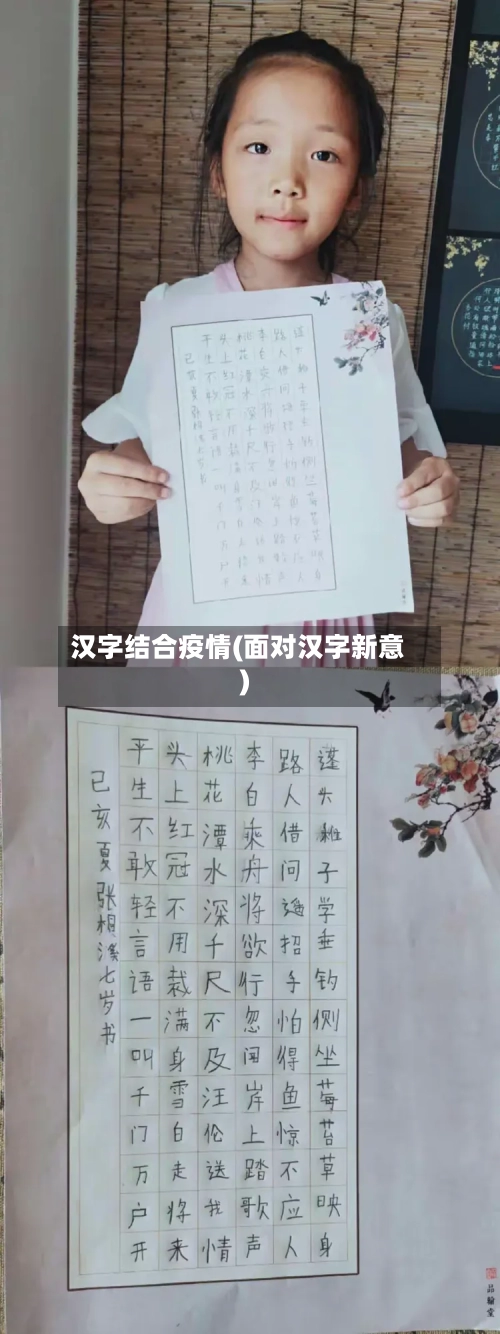 汉字结合疫情(面对汉字新意
)
蓬头稚子学垂钓侧坐莓苔草映身
路人借问遥招手怕得鱼惊不应人
李白乘舟将欲行忽闻岸上踏歌声
桃花潭水深千尺不及汪伦送我情
头上红冠不用裁满身雪白走将来
平生不敢轻言语一叫千门万户开
己亥夏张相溪七岁书
品翰堂